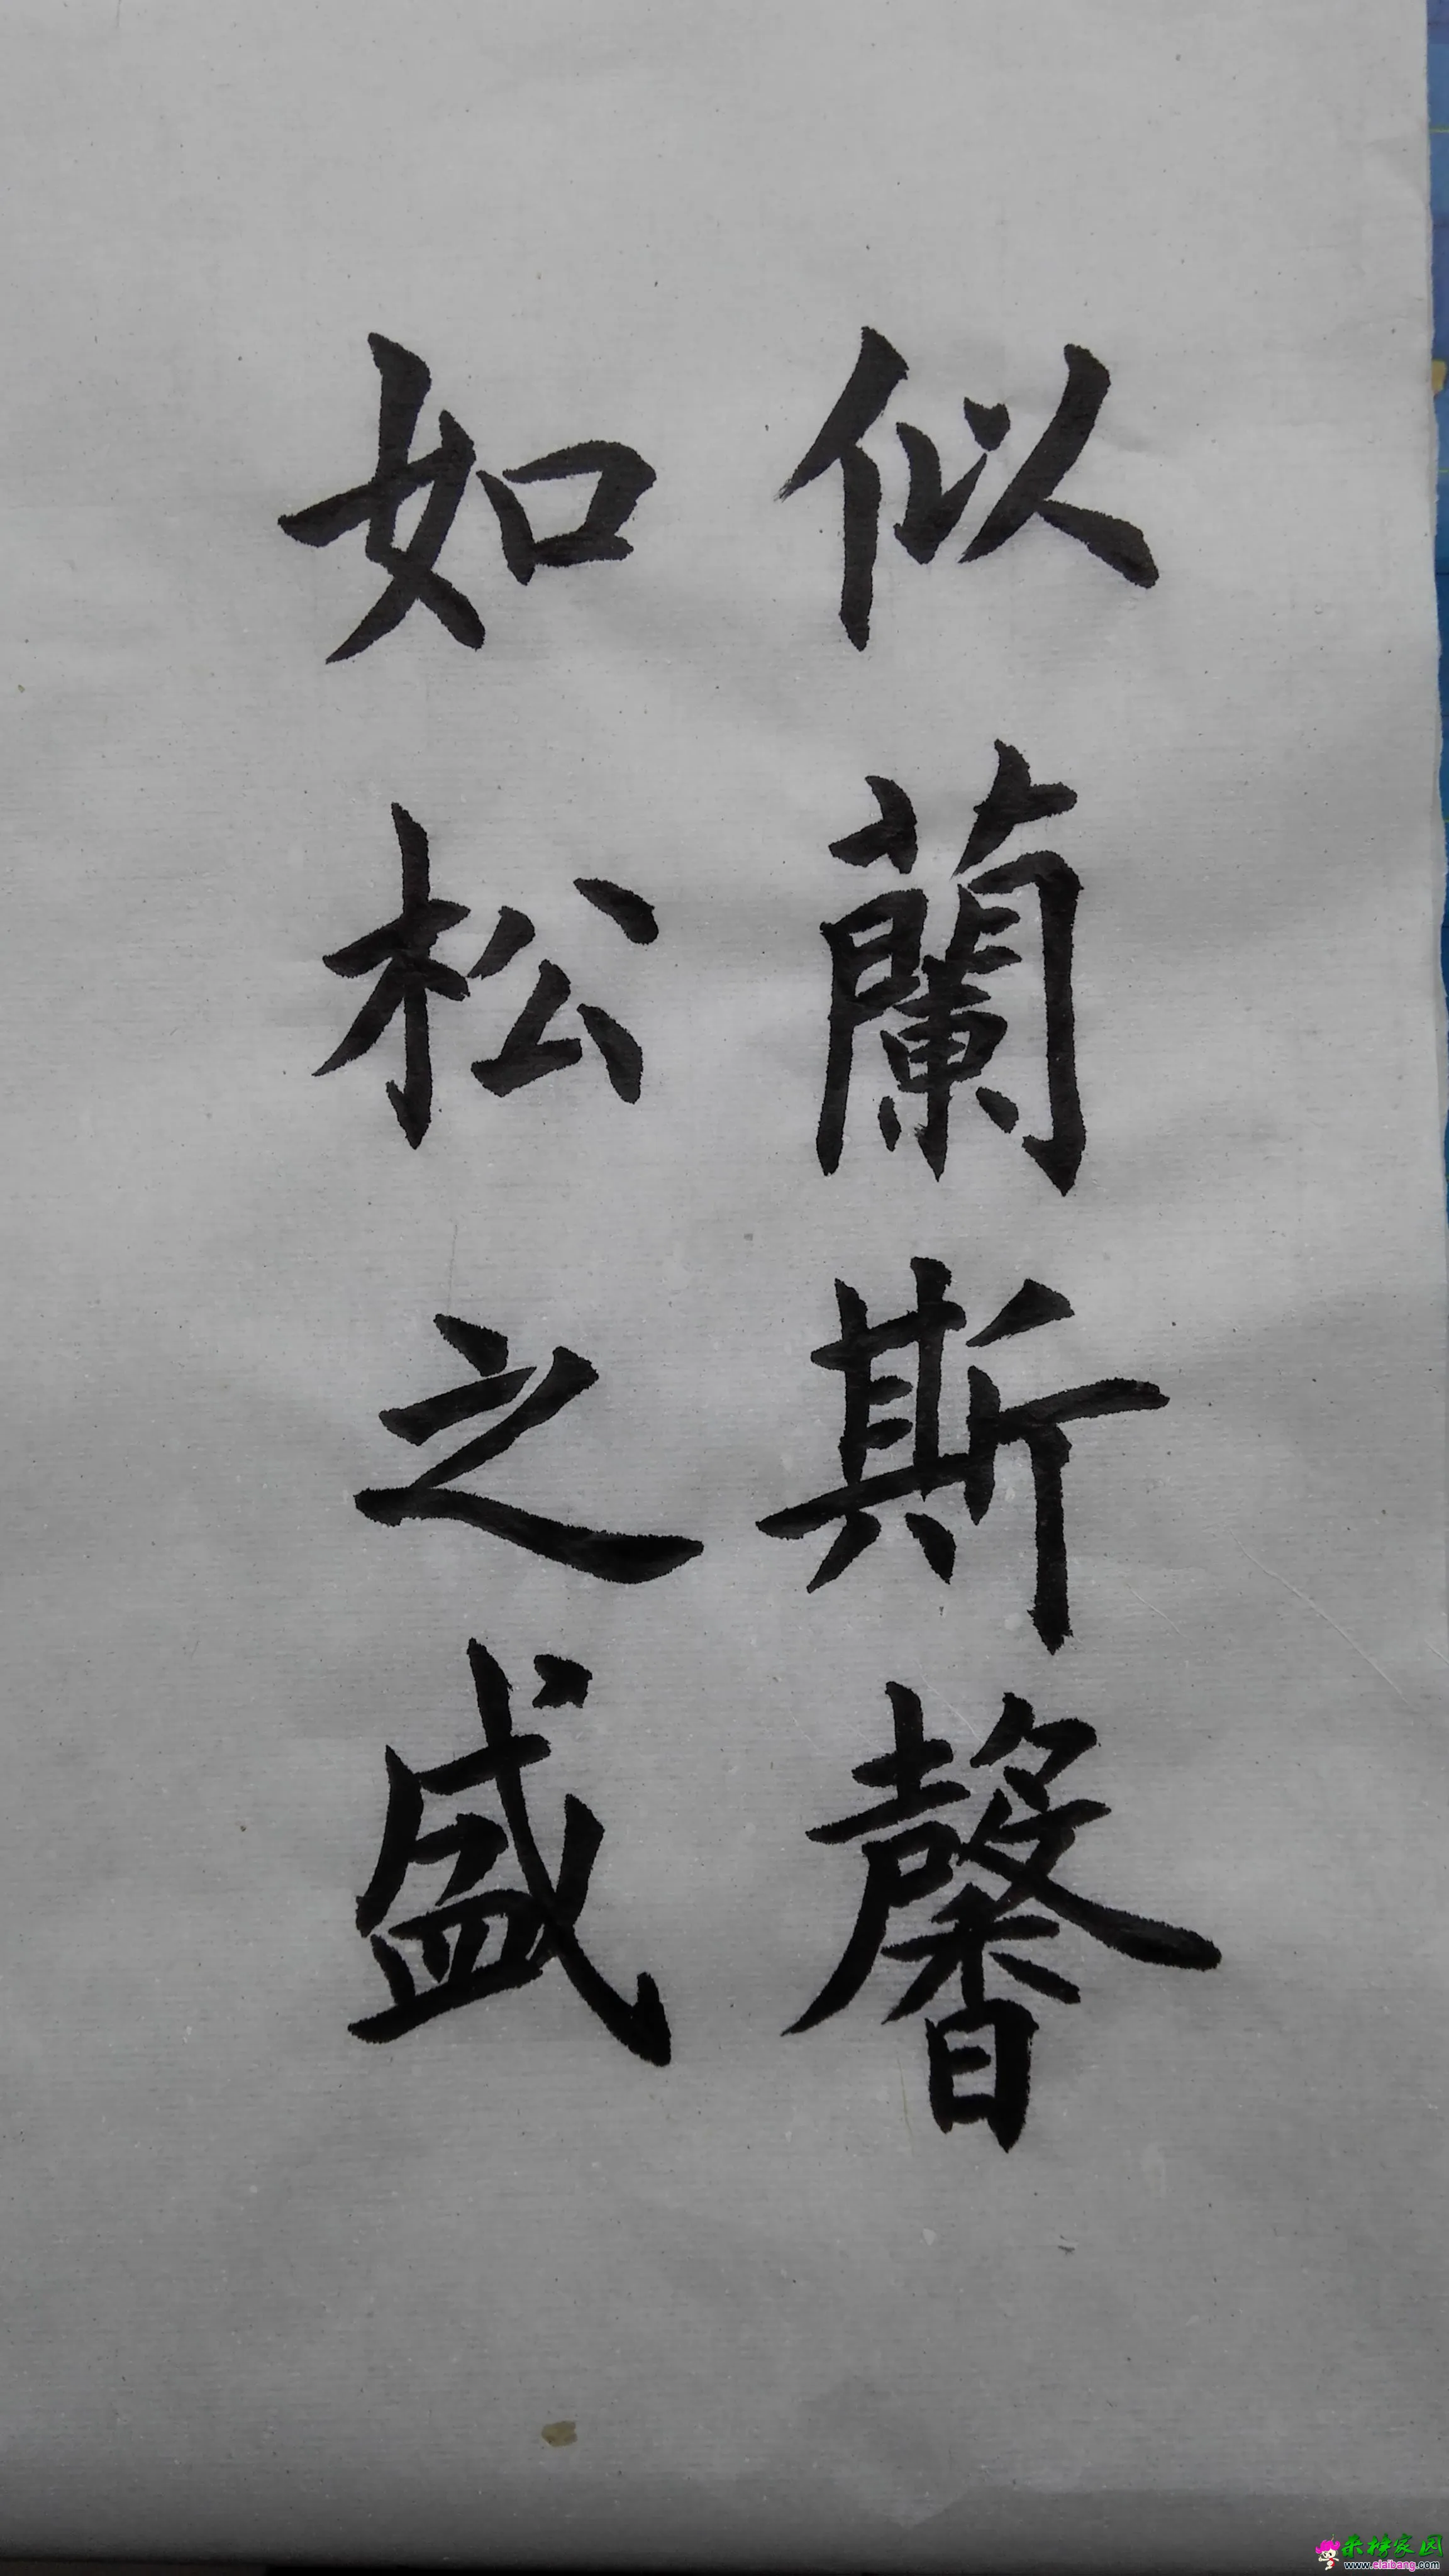 似蘭斯馨
如松之盛
来榜家园
www.elaibang.com